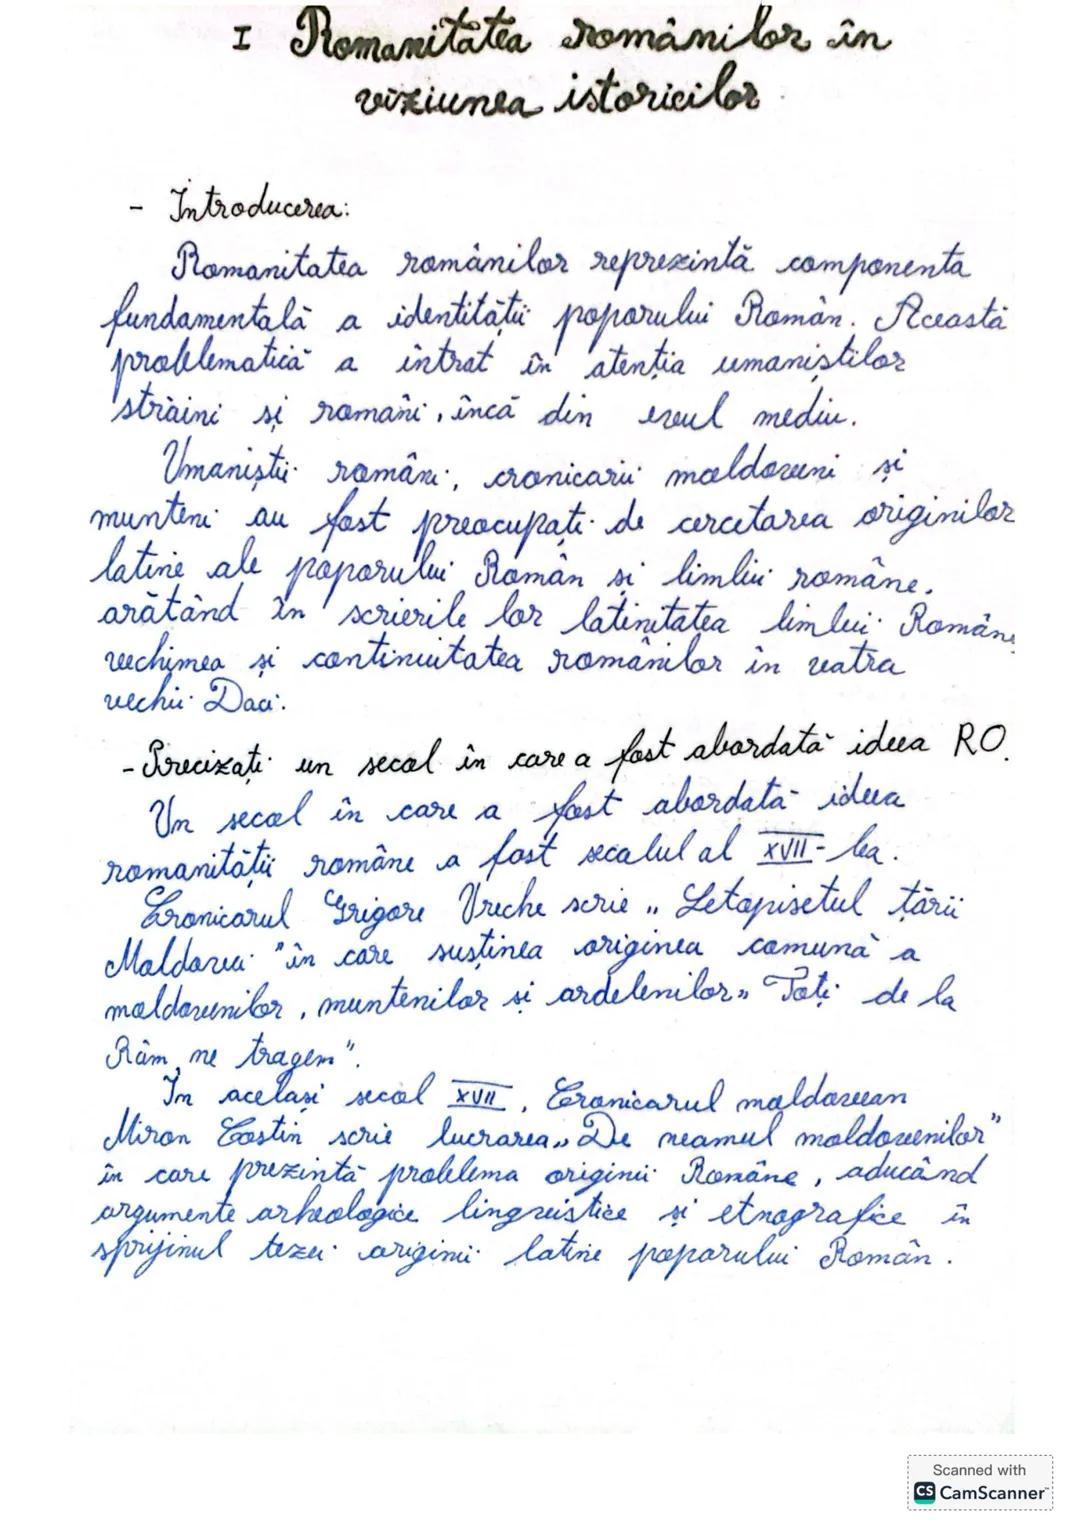 I Romanitatea românilor în
viziunea istoricilor
- Introducerea:
Romanitatea românilor reprezintă componenta
fundamentală a identității poporului Român. Această
problematică a intrat în atenția umaniștilor
străini și români, încă din evul mediu.
Umaniștii români, cronicarii moldoveni și
munteni au fost preocupați de cercetarea originilor
latine ale poporului Român și limbii române,
arătând în scrierile lor latinitatea limbii Române
vechimea și continuitatea românilor în vatra
vechii Daci.
- Precizați un secol în care a fost abordată ideea RO.
Un secol în care a fost abordată ideea
romanității române a fost secolul al XVII-lea.
Cronicarul Grigore Ureche scrie „Letopisetul țării
Moldovei" în care susținea originea comună a
moldovenilor, muntenilor și ardelenilor „Toți de la
Râm ne tragem".
In același secol XVII, Cronicarul moldovean
Miron Costin scrie lucrarea „De neamul moldovenilor"
în care prezintă problema originii Române, aducând
argumente arheologice lingvistice și etnografice în
sprijinul tezei originii latine poporului Român.
Scanned with
CS CamScanner